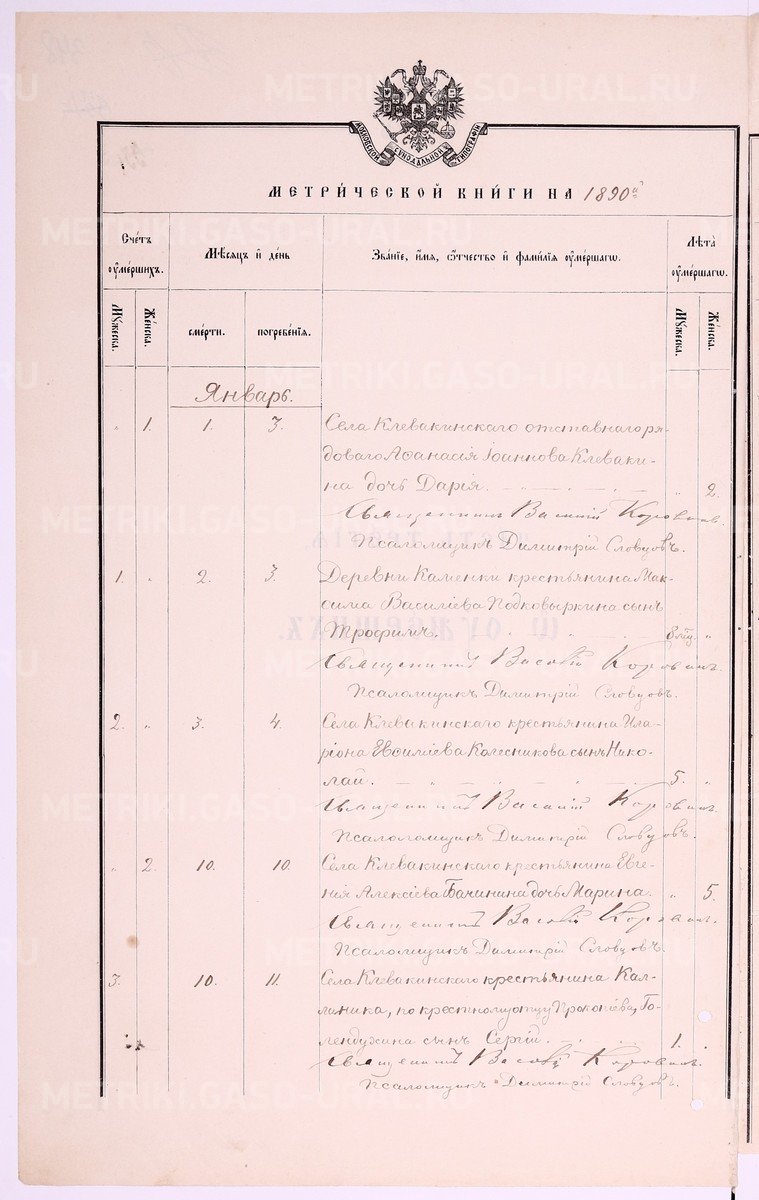 МОСКОВСКОЙ СѴНОДАЛЬНОЙ ТИПОГРАФІИ
МЕТРИ́ЧЕСКОЙ КНИ́ГИ НА 1890 й
Сче́тъ ᲂу҆ме́ршихъ.
Мѣ́сяцъ и҆ де́нь
Зва́нїе, и҆́мя, ѻ҆́тчество и҆ фами́лїя ᲂу҆ме́ршагѡ.
Лѣ̀та ᲂу҆ме́ршагѡ.
Мꙋ́жеска.
Же́нска.
сме́рти.
погребе́нїя.
Мꙋ́жеска.
Же́нска.
Январь.
" 1. 1. 3. Села Клевакинскаго отставнаго ря-
доваго Аѳанасія Іоаннова Клеваки-
на дочь Дарія. " 2.
Священникъ Василій
Псаломщикъ Димитрій Словцовъ.
1. " 2. 3. Деревни Каменки крестьянина Мак-
сима Васильева Подковыркина сынъ
Трофимъ. "
Священникъ Василій
Псаломщикъ Димитрій Словцовъ.
2. " 3. 4. Села Клевакинскаго крестьянина Ила-
ріона Евѳиміева Колесникова сынъ Нико-
лай. 5. "
Священникъ Василій
Псаломщикъ Димитрій Словцовъ.
" 2. 10. 10. Села Клевакинскаго крестьянина Евге-
нія Алексіева Бачинина дочь Марина. " 5.
Священникъ Василій
Псаломщикъ Димитрій Словцовъ.
3. 10. 11. Села Клевакинскаго крестьянина Кал-
линика, по крестному отцу Прокопіева, Го-
лендухина сынъ Сергій. 1.
Священникъ Василій
Псаломщикъ Димитрій Словцовъ.
METRIKI.GASO-URAL.RU